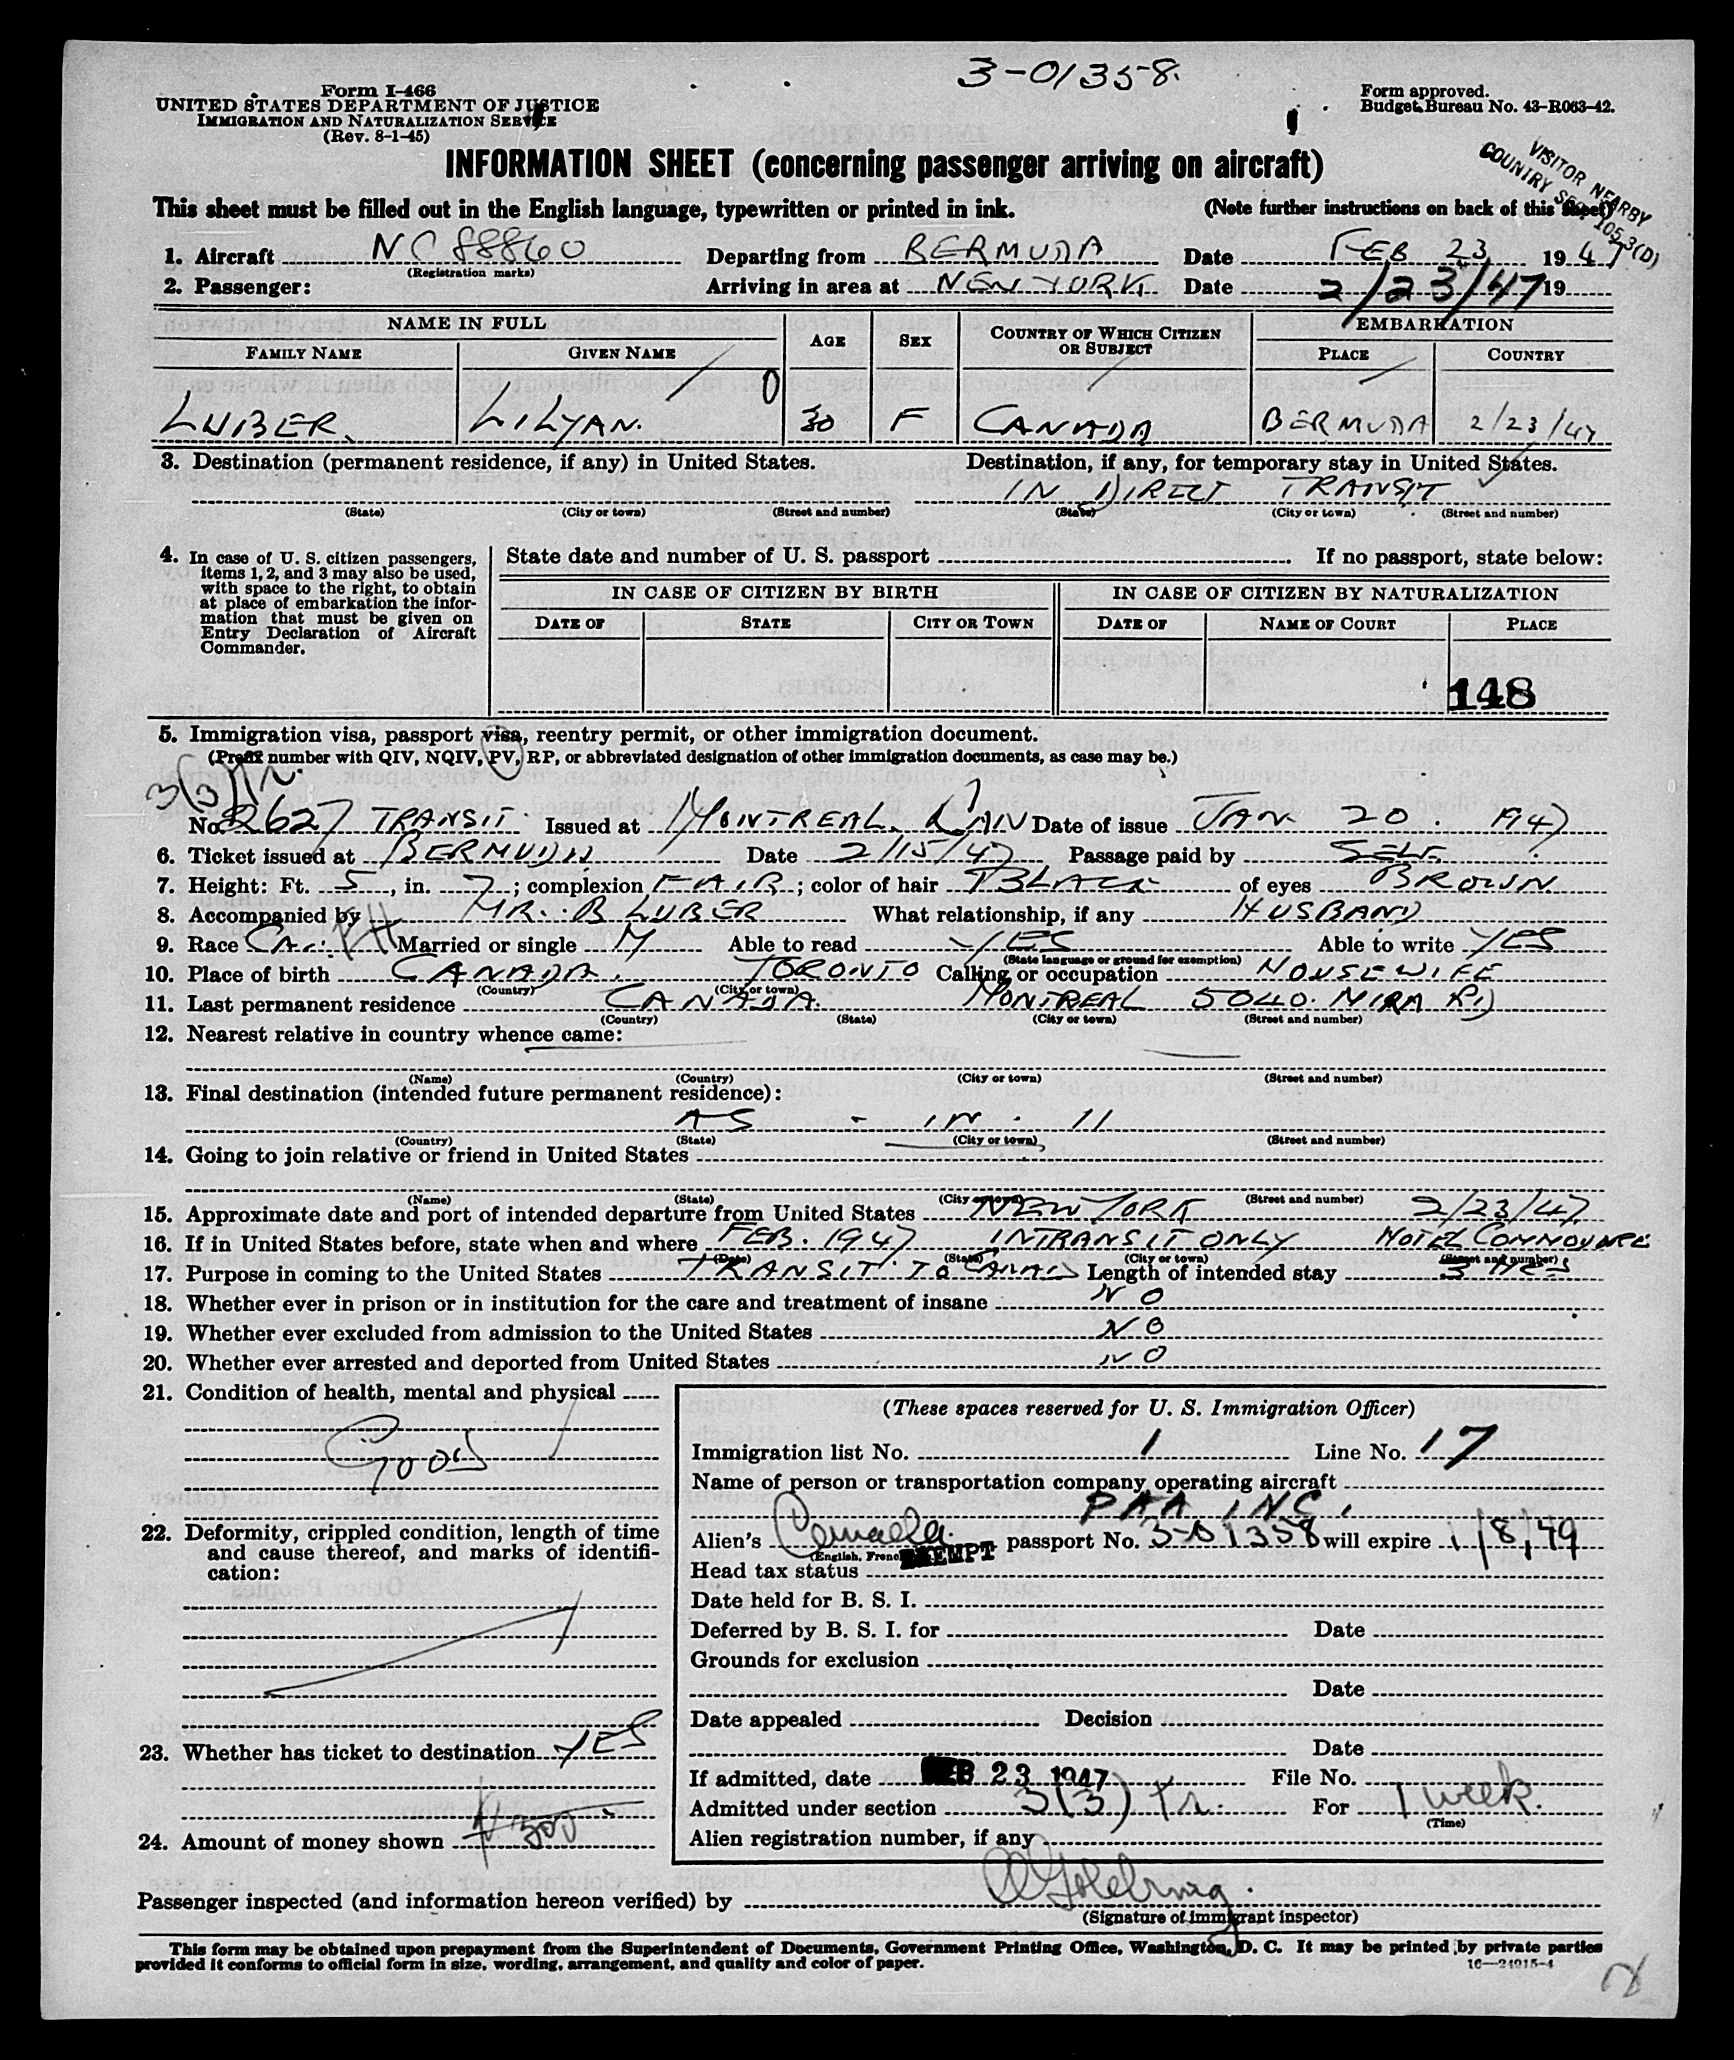 3-01358.
Form I-466
UNITED STATES DEPARTMENT OF JUSTICE
IMMIGRATION AND NATURALIZATION SERVICE
(Rev. 8-1-45)
Form approved.
Budget Bureau No. 43-R063-42.
VISITOR NEARBY
COUNTRY SEC. 105.3(D)
INFORMATION SHEET (concerning passenger arriving on aircraft)
This sheet must be filled out in the English language, typewritten or printed in ink. (Note further instructions on back of this sheet)
1. Aircraft NC 88860 Departing from BERMUDA Date FEB 23 1947
(Registration marks)
2. Passenger: Arriving in area at NEW YORK Date 2/23/47 19
NAME IN FULL AGE SEX COUNTRY OF WHICH CITIZEN OR SUBJECT EMBARKATION
FAMILY NAME GIVEN NAME PLACE COUNTRY
0
LUBER LILYAN. 30 F CANADA BERMUDA 2/23/47
3. Destination (permanent residence, if any) in United States. Destination, if any, for temporary stay in United States.
IN DIRECT TRANSIT
(State) (City or town) (Street and number) (State) (City or town) (Street and number)
4. In case of U. S. citizen passengers, items 1, 2, and 3 may also be used, with space to the right, to obtain at place of embarkation the information that must be given on Entry Declaration of Aircraft Commander.
State date and number of U. S. passport If no passport, state below:
IN CASE OF CITIZEN BY BIRTH IN CASE OF CITIZEN BY NATURALIZATION
DATE OF STATE CITY OR TOWN DATE OF NAME OF COURT PLACE
148
5. Immigration visa, passport visa, reentry permit, or other immigration document.
(Prefix number with QIV, NQIV, PV, RP, or abbreviated designation of other immigration documents, as case may be.)
3(3)
No. 2627 TRANSIT Issued at MONTREAL, CAN Date of issue JAN. 20. 1947
6. Ticket issued at BERMUDA Date 2/15/47 Passage paid by SELF
7. Height: Ft. 5, in. 7; complexion FAIR; color of hair BLACK of eyes BROWN
8. Accompanied by MR. B LUBER What relationship, if any HUSBAND
9. Race Married or single M Able to read YES Able to write YES
(State language or ground for exemption)
10. Place of birth CANADA. TORONTO Calling or occupation HOUSEWIFE
(Country) (City or town)
11. Last permanent residence CANADA. MONTREAL 5040. MIRA RD
(Country) (State) (City or town) (Street and number)
12. Nearest relative in country whence came:
(Name) (Country) (City or town) (Street and number)
13. Final destination (intended future permanent residence):
AS - IN - 11
(Country) (State) (City or town) (Street and number)
14. Going to join relative or friend in United States
(Name) (State) (City or town) (Street and number)
15. Approximate date and port of intended departure from United States NEW YORK 2/23/47
16. If in United States before, state when and where FEB. 1947 INTRANSIT ONLY HOTEL COMMODORE
(Date) (State) (City or town) (Street and number)
17. Purpose in coming to the United States TRANSIT TO CANAD Length of intended stay 3 HRS
18. Whether ever in prison or in institution for the care and treatment of insane NO
19. Whether ever excluded from admission to the United States NO
20. Whether ever arrested and deported from United States NO
21. Condition of health, mental and physical
Good
22. Deformity, crippled condition, length of time and cause thereof, and marks of identification:
23. Whether has ticket to destination YES
24. Amount of money shown 300
(These spaces reserved for U. S. Immigration Officer)
Immigration list No. 1 Line No. 17
Name of person or transportation company operating aircraft
PAA INC.
Alien's Canada passport No. 3-01358 will expire 1/8/49
(English, French
Head tax status EXEMPT
Date held for B. S. I.
Deferred by B. S. I. for Date
Grounds for exclusion
Date
Date appealed Decision
Date
If admitted, date FEB 23 1947 File No.
Admitted under section 3(3) tr. For 1 week.
(Time)
Alien registration number, if any
Passenger inspected (and information hereon verified) by
(Signature of immigrant inspector)
This form may be obtained upon prepayment from the Superintendent of Documents, Government Printing Office, Washington, D. C. It may be printed by private parties
provided it conforms to official form in size, wording, arrangement, and quality and color of paper.
16—24915-4